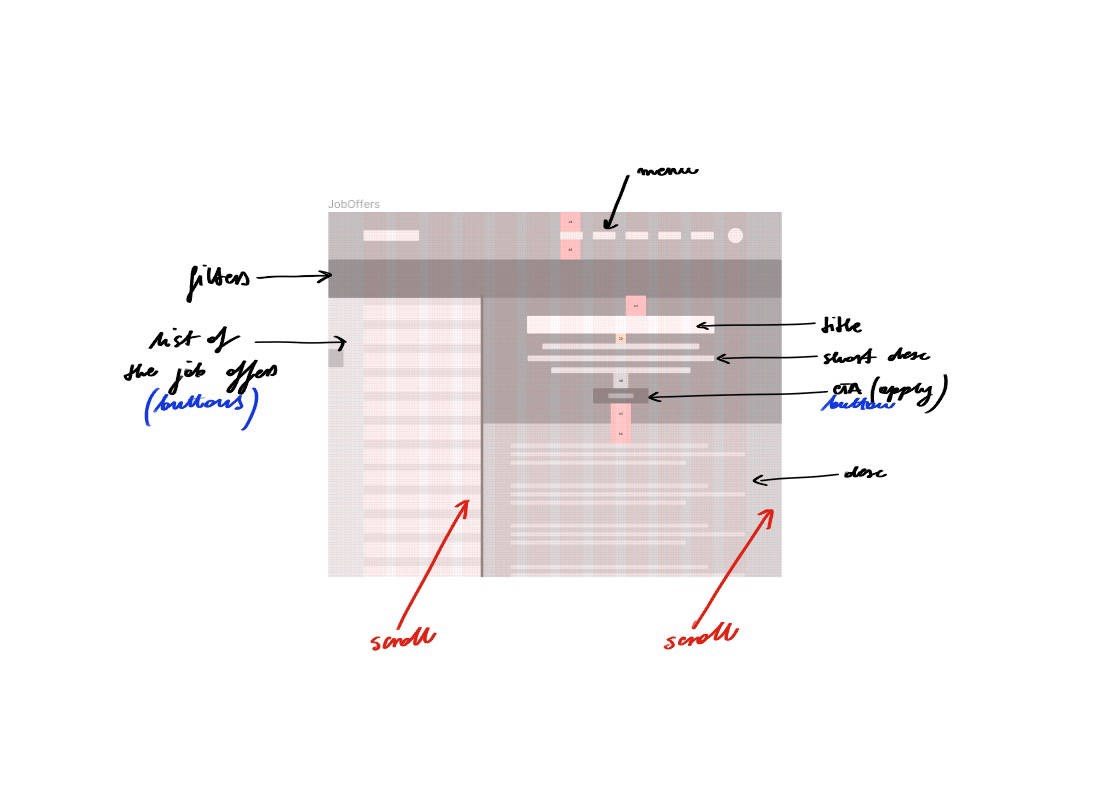 menu
JobOffers
filters
list of
the job offers
(buttons)
title
short desc
CTA (apply)
button
desc
scroll
scroll